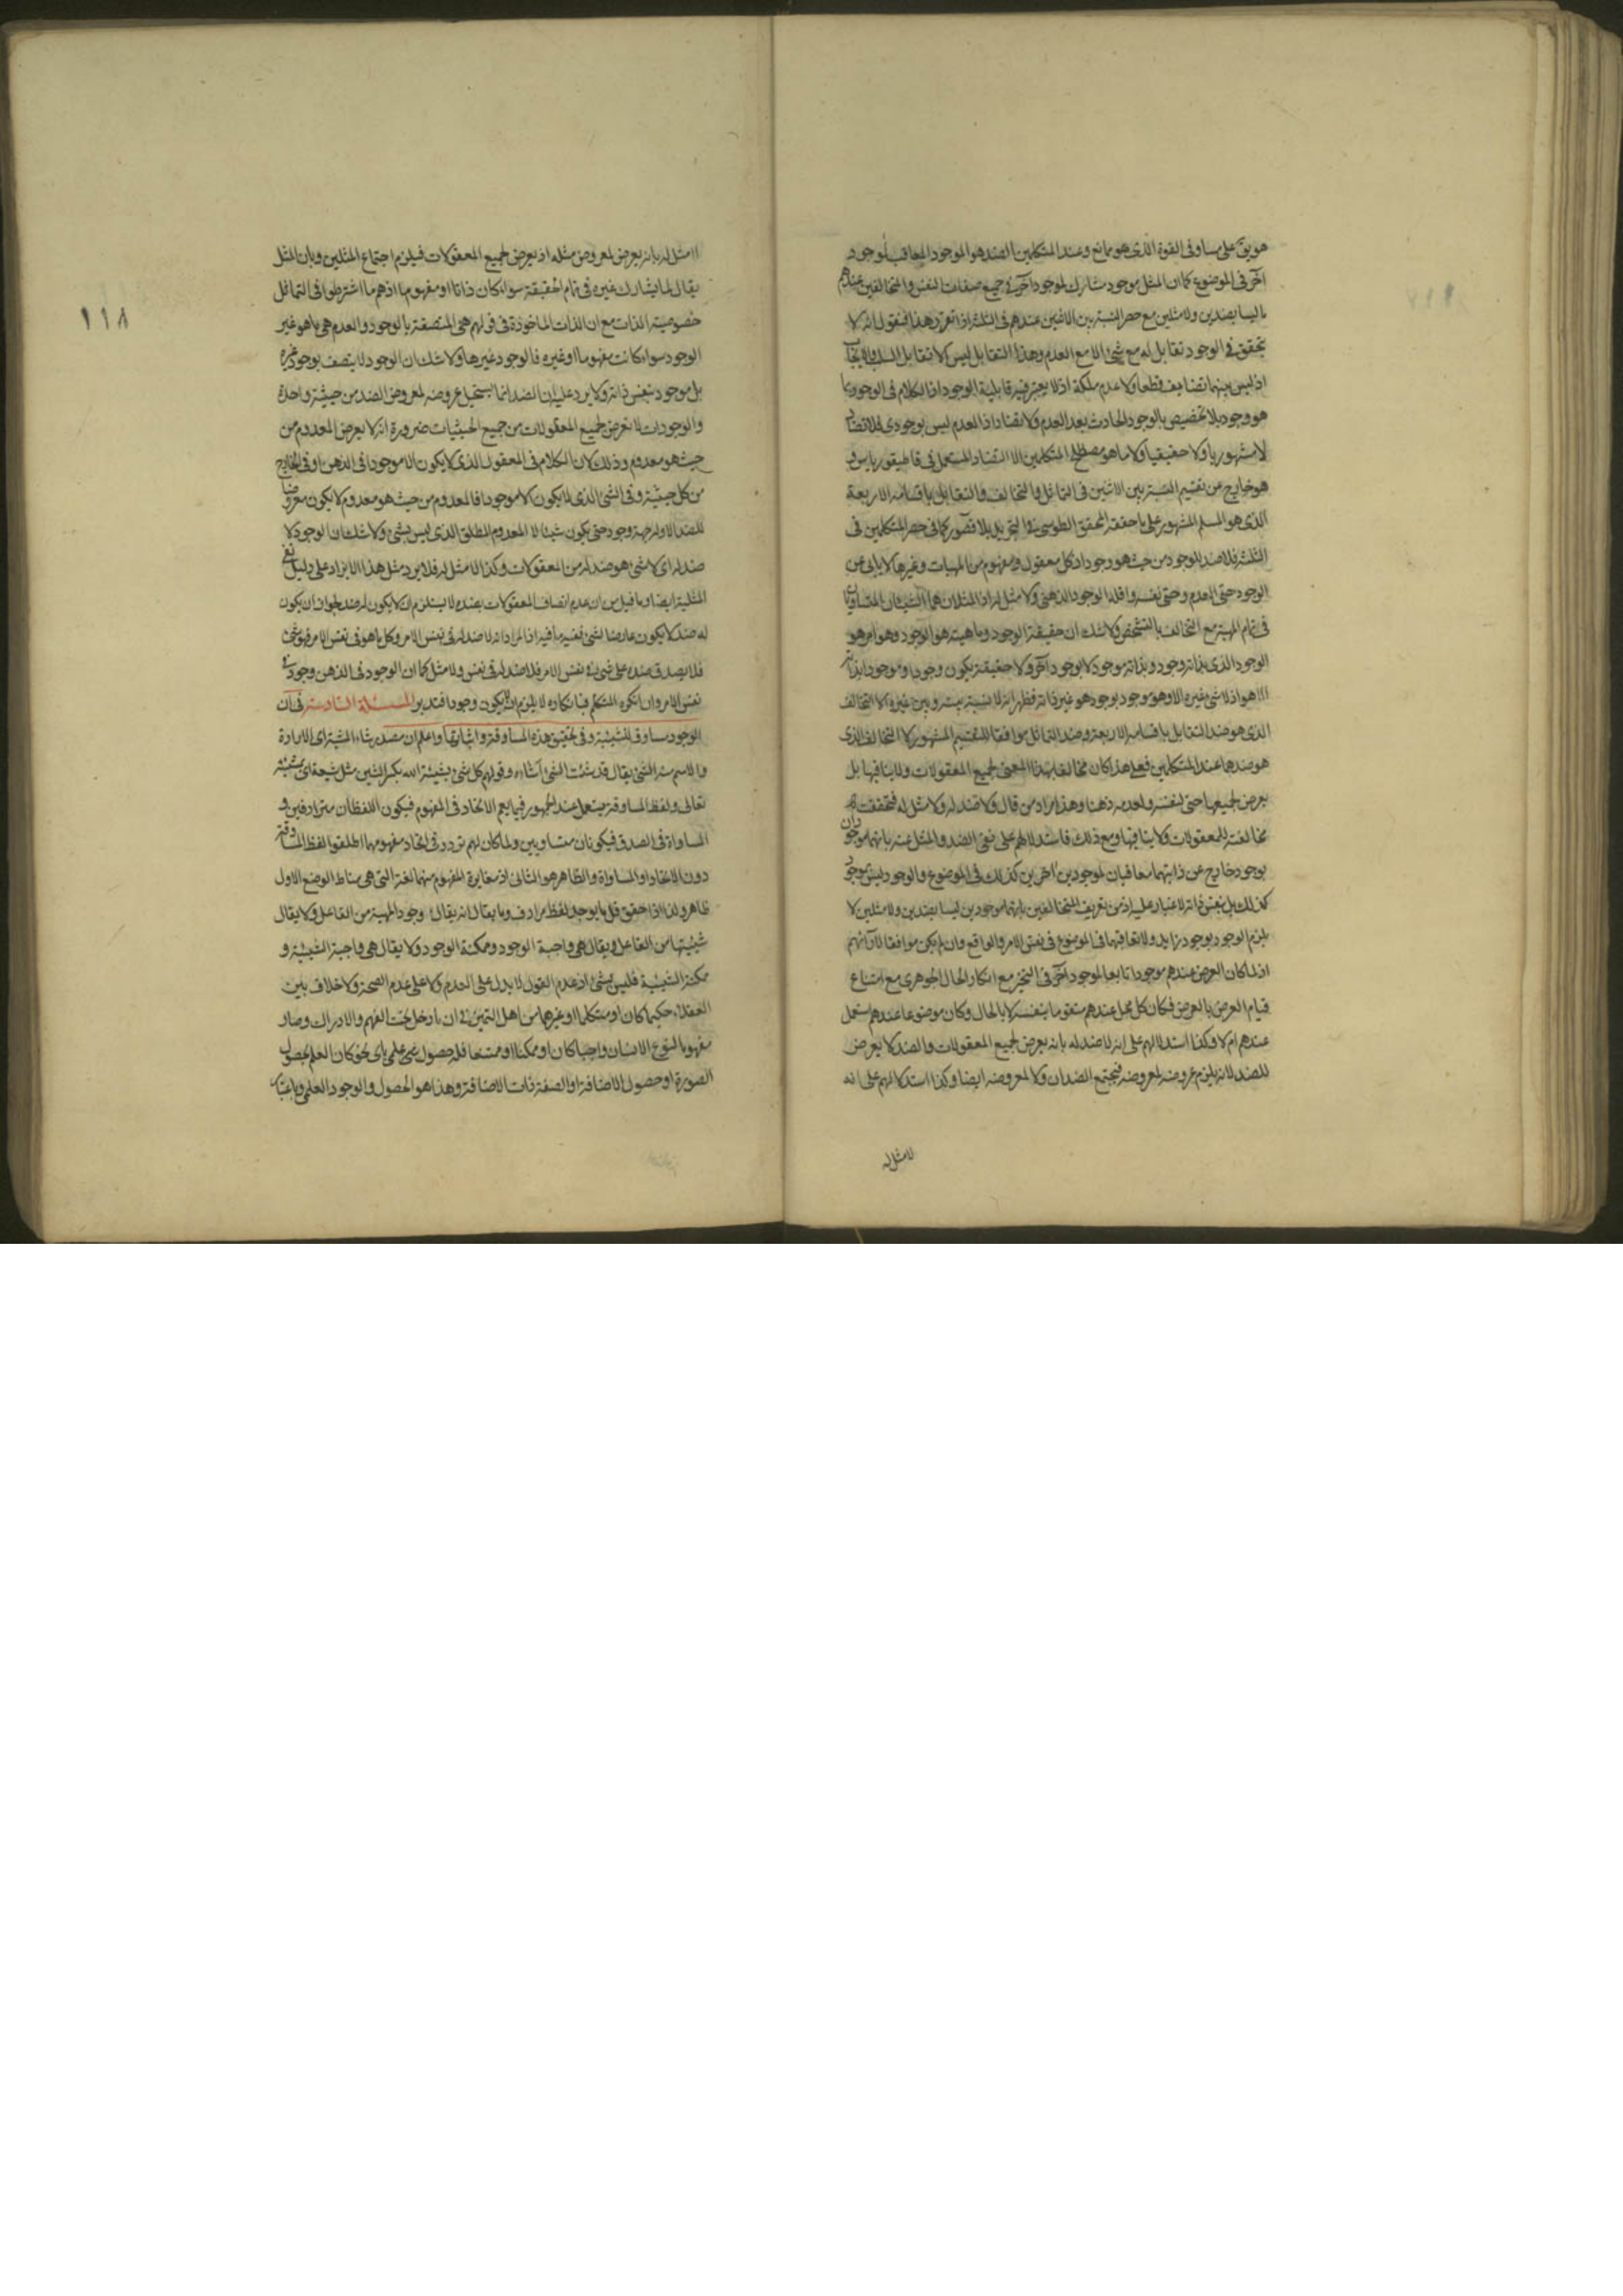 هو يق على مساو فى القوة الذى هو ممانع وعند المتكلمين الضد هو الموجود المعاقب لموجود
آخر فى الموضوع كما ان المثل موجود مشارك لموجود آخر فى جميع صفات النفس والمتخالفين عندهم
ما ليسا بضدين ولا مثلين مع حصر النسبة بين الاثنين عندهم فى الثلثة اذا تقرر هذا فنقول انه لا
يتحقق فى الوجود تقابل له مع شئ الا مع العدم وهذا التقابل ليس الا تقابل السلب والايجاب
اذ ليس بينهما تضايف قطعا ولا عدم ملكة اذ لا يعتبر فيه قابلية الوجود اذ الكلام فى الوجود بما
هو وجود بلا تخصيص بالوجود الحادث بعد العدم ولا تضاد اذ العدم ليس بوجودى فلا تضاد
لا مشهوريا ولا حقيقيا ولا ما هو مصطلح المتكلمين الا التضاد المستعمل فى قاطيقورياس و
هو خارج عن تقسيم النسبة بين الاثنين فى التماثل والتخالف والتقابل باقسامه الاربعة
الذى هو المسلم المشهور على ما حققه المحقق الطوسى فى التجريد بلا قصور كما فى حصر المتكلمين فى
الثلثة فلا ضد للوجود من حيث هو وجود اذ كل معقول ومفهوم من المهيات وغيرها لا يابى عن
الوجود حتى العدم وحتى نفسه واقله الوجود الذهنى ولا مثل له اذ المثلان هما الشيئان المتساويان
فى تمام المهية مع التخالف بالتشخص ولا شك ان حقيقة الوجود وماهيته هو الوجود وهو امر هو
الوجود الذى بذاته وجود وبذاته موجود لا بوجود آخر ولا حقيقة يكون وجودا وموجودا بذاته
الا هو اذ لا شئ غيره الا وهو موجود بوجود هو غير ذاته فظهر انه لا نسبة بينه وبين غيره الا التخالف
الذى هو ضد التقابل باقسامه الاربعة وضد التماثل موافقا للتقسيم المشهور لا التخالف الذى
هو ضدهما عند المتكلمين فعلى هذا كان مخالفا بهذا المعنى لجميع المعقولات ولا ينافيها بل
يعرض لجميعها حتى لنفسه ولعدمه ذهنا وهذا مراد من قال ولا ضد له ولا مثل له فتحققت
مخالفته للمعقولات ولا ينافيها ومع ذلك فاستدلالهم على نفى الضد والمثل عنه بانهما موجودان
بوجود خارج عن ذاتيهما معاقبان لموجودين آخرين كذلك فى الموضوع والوجود ليس موجود
كذلك بل بنفس ذاته لا غبار عليه اذ من تعريف المتخالفين بانهما موجودين ليسا بضدين ولا مثلين لا
يلزم الوجود بوجود زايد ولا تعاقبهما فى الموضوع فى نفس الامر والواقع وان لم يكن موافقا لآرائهم
اذ لما كان العرض عندهم موجودا تابعا لموجود آخر فى التحيز مع انكار الحال الجوهرى مع امتناع
قيام العرض بالعرض فكان كل محل عندهم متقوما بنفسه لا بالحال وكان موضوعا عندهم استعمل
عندهم ام لا وكذا استدلالهم على انه لا ضد له بانه يعرض لجميع المعقولات والضد لا يعرض
للضد لانه يلزم عروضه لمعروضه فيجتمع الضدان ولا لمعروضه ايضا وكذا استدلالهم على انه
لا مثل له
١١٨
لا مثل له بانه يعرض لمعروض مثله اذ يعرض لجميع المعقولات فيلزم اجتماع المثلين وبان المثل
يقال لما يشارك غيره فى تمام الحقيقة سواء كان ذاتا او مفهوما اذ هم ما اشترطوا فى التماثل
خصوصية الذات مع ان الذات الماخوذة فى قولهم هى المتصفة بالوجود والعدم هى ما هو غير
الوجود سواء كانت مفهوما او غيره فالوجود غيرها ولا شك ان الوجود لا يتصف بوجود غيره
بل موجود بنفس ذاته ولا يرد عليه ان الضد انما يستحيل عروضه لمعروض الضد من حيثية واحدة
والوجودات لا تعرض لجميع المعقولات من جميع الحيثيات ضرورة انه لا يعرض المعدوم من
حيث هو معدوم وذلك لان الكلام فى المعقول الذى لا يكون الا موجودا فى الذهن او فى الخارج
من كل حيثية وفى الشئ الذى لا يكون الا موجودا فالمعدوم من حيث هو معدوم لا يكون معروضا
للضد الا وله جهة وجود حتى يكون شيئا لا المعدوم المطلق الذى ليس بشئ ولا شك ان الوجود لا
ضد له اى لا شئ هو ضد له من المعقولات وكذا لا مثل له فلا يرد مثل هذا الايراد على دليل نفى
المثلية ايضا وما قيل من ان عدم اتصاف المعقولات بضده لا يستلزم ان لا يكون له ضد لجواز ان يكون
له ضد لا يكون عارضا لشئ ففيه ما فيه اذ المراد انه لا ضد له فى نفس الامر وكل ما هو فى نفس الامر فهو شئ
فلا يصدق ضده على شئ فى نفس الامر فلا ضد له فى نفس ولا مثل كما ان الوجود فى الذهن وجود فى
نفس الامر وان انكره المتكلم فبانكاره لا يلزم ان لا يكون وجودا فتدبر المسئلة السادسة فى ان
الوجود مساوق للشيئية وفى تحقيق هذه المساوقة واثباتها واعلم ان مصدر شاء المشية اى الارادة
والاسم منه الشئ يقال قد شئت الشئ اشاءه وقولهم كل شئ بشيئة الله بكسر الشين مثل شيعة اى بمشيئته
تعالى ولفظ المساوقة يستعمل عند الجمهور فيما يعم الاتحاد فى المفهوم فيكون اللفظان مترادفين و
المساواة فى الصدق فيكونان متساويين ولما كان لهم تردد فى اتحاد مفهومهما اطلقوا لفظ المساوقة
دون الاتحاد او المساواة والظاهر هو الثانى اذ مغايرة المفهوم منهما لغة التى هى مناط الوضع الاول
ظاهر ولذا اذا حقق قل ما يوجد لفظ مرادف وما يقال انه يقال وجود المهية من الفاعل ولا يقال
شيئيتها من الفاعل ويقال هى واجبة الوجود وممكنة الوجود ولا يقال هى واجبة الشيئية و
ممكنة الشيئية فليس بشئ اذ عدم القول لا يدل على العدم ولا على عدم الصحة ولا خلاف بين
العقلاء حكيما كان او متكلما او غيرهما من اهل التميز فى ان ما دخل تحت الفهم والادراك وصار
مفهوما لنوع الانسان واجبا كان او ممكنا او ممتنعا فله حصول شئ علمى باى نحو كان العلم بحصول
الصورة او حصول الاضافة او الصفة ذات الاضافة وهذا هو الحصول والوجود العلمى وباعتبار